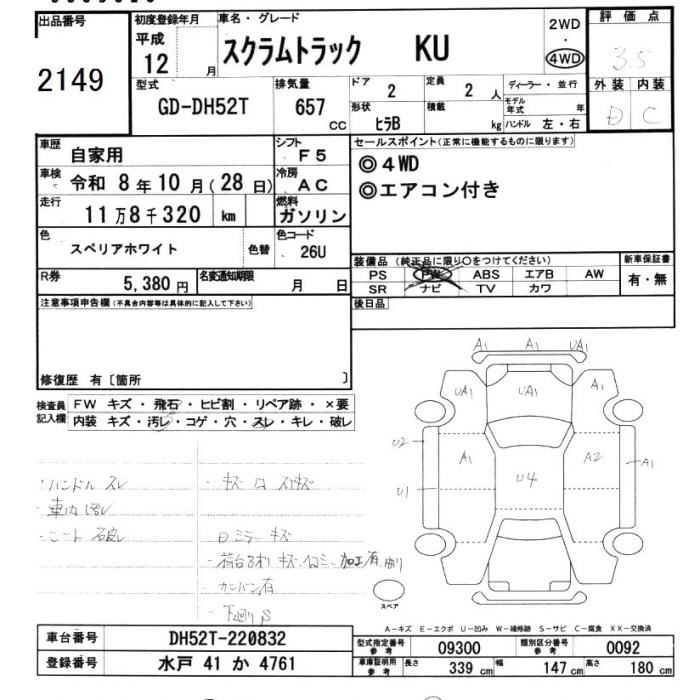 出品番号
2149
初度登録年月
平成
12 月
車名・グレード
スクラムトラック KU
2WD
・
4WD
評価点
3.5
外装 内装
D C
型式
GD-DH52T
排気量
657
CC
ドア
2
定員
2 人
形状
ヒラB
積載
kg
ディーラー・並行
モデル年式 年
ハンドル 左・右
車歴
自家用
シフト
F5
車検
令和 8年10月(28日)
冷房
AC
走行
11万8千320 km
燃料
ガソリン
色
スペリアホワイト
色替
色コード
26U
R券
5,380円
名変通知期限
月 日
セールスポイント(正常に機能するものに限ります)
◎4WD
◎エアコン付き
装備品 (純正品に限り○をつけてください)
PS PW ABS エアB AW
SR ナビ TV カワ
新車保証書
有・無
後日品
注意事項申告欄(不具合内容等は具体的に記入して下さい)
修復歴 有〔箇所 〕
検査員記入欄
FW キズ・飛石・ヒビ割・リペア跡・×要
内装 キズ・汚レ・コゲ・穴・スレ・キレ・破レ
・ハンドル スレ
・車内 汚レ
・シート 破レ
ミラー キズ
下廻り S
A1 A1 UA1
UA1 UA1 A1
U2 A1 A2 A1
U1 U4
スペア
A-キズ E-エクボ U-凹み W-補修跡 S-サビ C-腐食 XX-交換済
車台番号
DH52T-220832
登録番号
水戸 41 か 4761
型式指定番号
参考
09300
類別区分番号
参考
0092
車庫証明用
参考
長さ 339 cm 幅 147 cm 高さ 180 cm